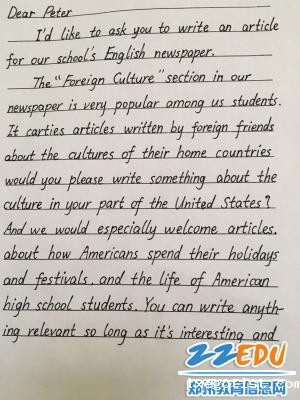 Dear Peter
I'd like to ask you to write an article
for our school's English newspaper.
The "Foreign Culture" section in our
newspaper is very popular among us students.
It carties articles written by foreign friends
about the cultures of their home countries
would you please write something about the
culture in your part of the United States?
And we would especially welcome articles.
about how Americans spend their holidays
and festivals, and the life of American
high school students. You can write anyth-
ing relevant so long as it's interesting and
ZZEDU
郑州教育信息网